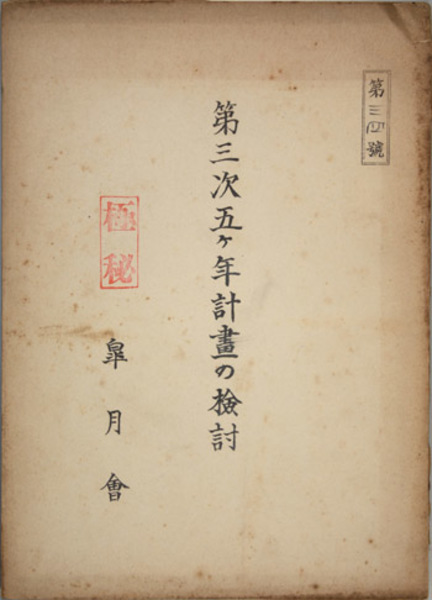 第三四號
第三次五ヶ年計畫の檢討
極秘
皐月會